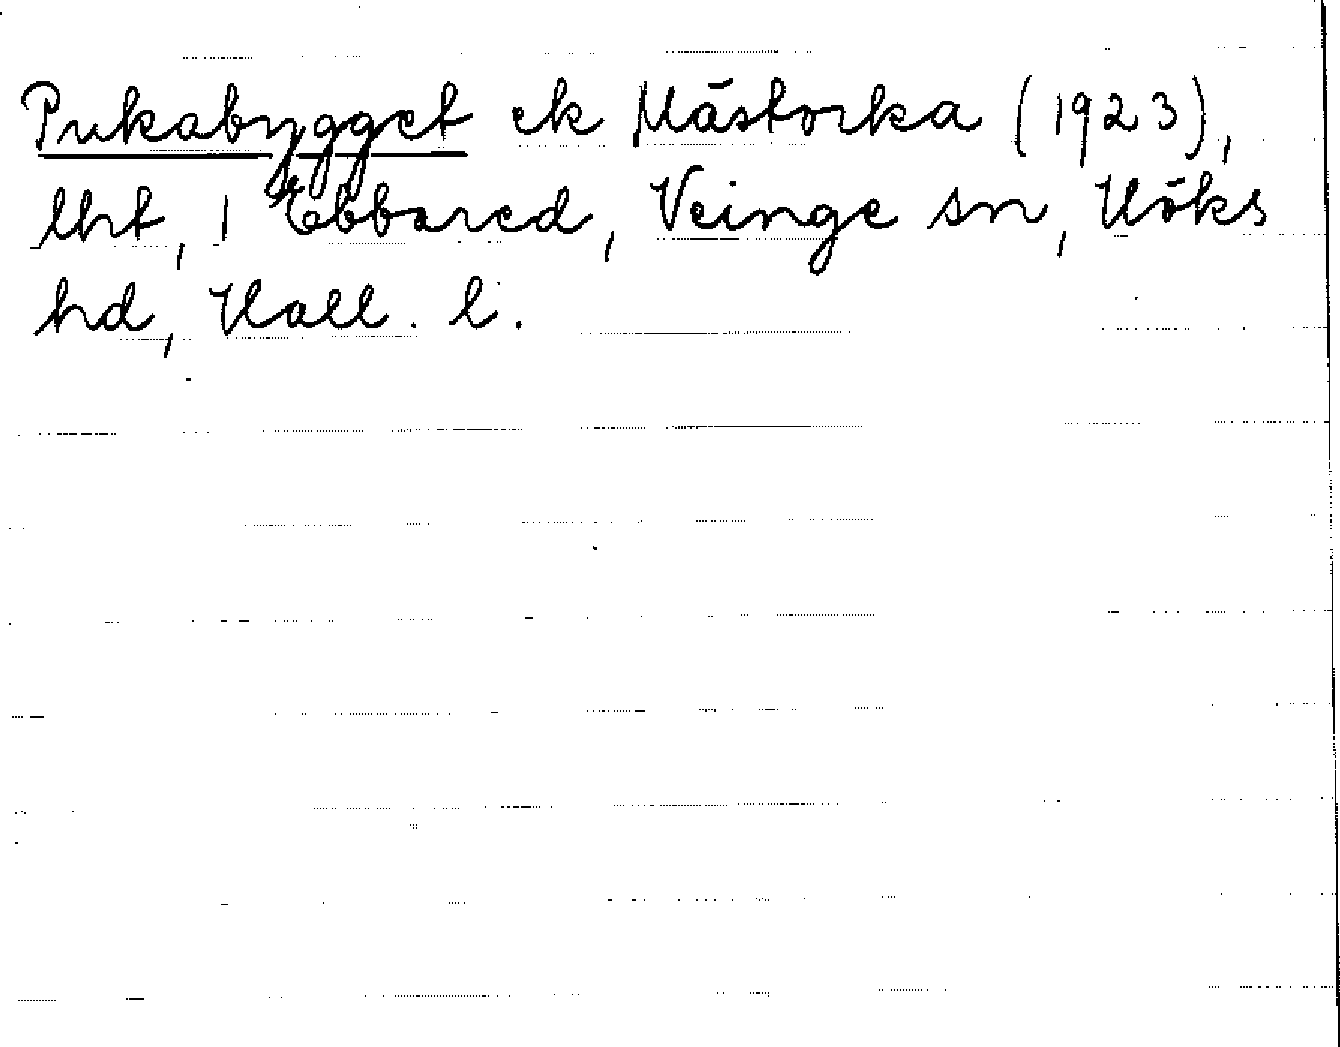 Pukabygget ek Mästorka (1923),
lht, i Ebbared, Veinge sn, Höks
hd, Hall. l.